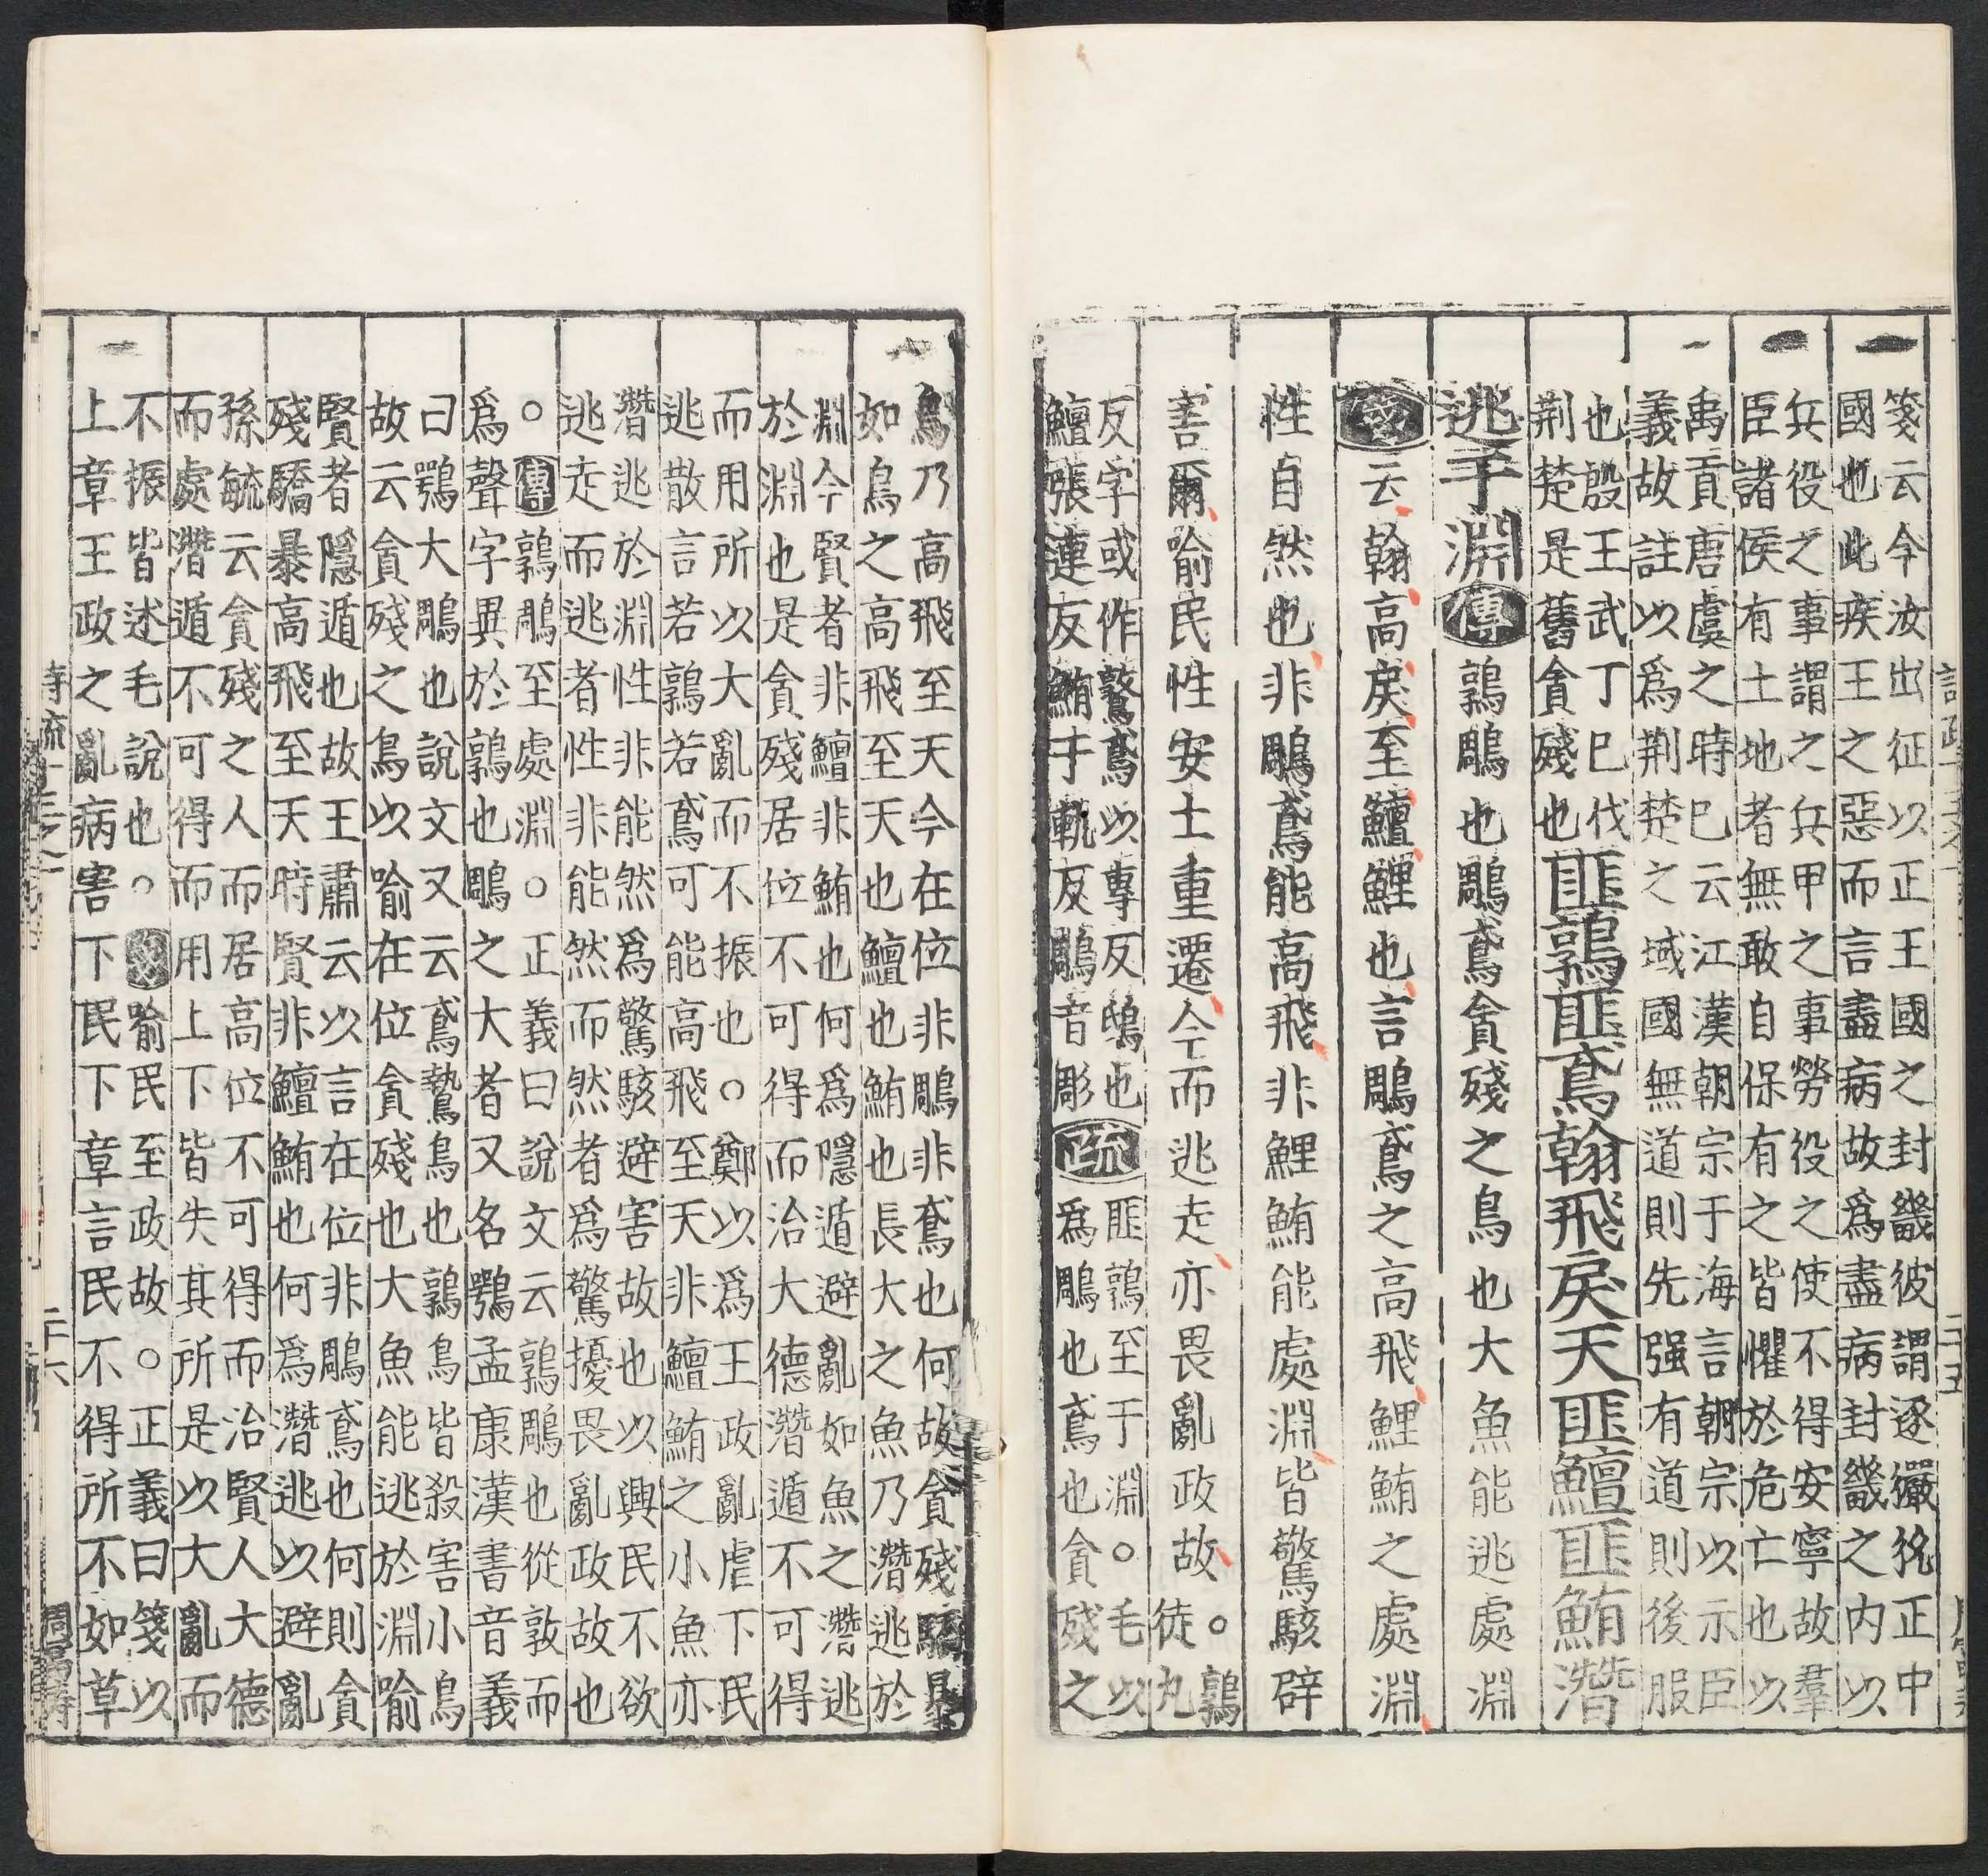 箋云今汝出征以正王國之封畿彼謂逐玁狁正中
國也此疾王之惡而言盡病故爲盡病封畿之内以
兵役之事謂之兵甲之事勞役之使不得安寧故羣
臣諸侯有土地者無敢自保有之皆懼於危亡也以
禹貢唐虞之時巳云江漢朝宗于海言朝宗以示臣
義故註以爲荆楚之域國無道則先强有道則後服
也殷王武丁巳伐
荆楚是舊貪殘也
匪鶉匪鳶翰飛戾天匪鱣匪鮪潛
逃于淵傳鶉鵰也鵰鳶貪殘之鳥也大魚能逃處淵
箋云翰高戾至鱣鯉也言鵰鳶之高飛鯉鮪之處淵
性自然也非鵰鳶能高飛非鯉鮪能處淵皆驚駭辟
害爾喻民性安土重遷今而逃走亦畏亂政故。鶉
徒丸
反字或作鷻鳶以專反鴟也
鱣張連反鮪于軌反鵰音彫
疏
匪鶉至于淵。毛以
爲鵰也鳶也貪殘之
鳥乃高飛至天今在位非鵰非鳶也何故貪殘驕暴
如鳥之高飛至天也鱣也鮪也長大之魚乃潛逃於
淵今賢者非鱣非鮪也何爲隱遁避亂如魚之潛逃
於淵也是貪殘居位不可得而治大德潛遁不可得
而用所以大亂而不振也。鄭以爲王政亂虐下民
逃散言若鶉若鳶可能高飛至天非鱣鮪之小魚亦
潛逃於淵性非能然爲驚駭避害故也以興民不欲
逃走而逃者性非能然而然者爲驚擾畏亂政故也
。傳鶉鵰至處淵。正義曰說文云鶉鵰也從敦而
爲聲字異於鶉也鵰之大者又名鶚孟康漢書音義
曰鶚大鵰也說文又云鳶鷙鳥也鶉鳥皆殺害小鳥
故云貪殘之鳥以喻在位貪殘也大魚能逃於淵喻
賢者隱遁也故王肅云以言在位非鵰鳶也何則貪
殘驕暴高飛至天時賢非鱣鮪也何爲潛逃以避亂
孫毓云貪殘之人而居高位不可得而治賢人大德
而處潛遁不可得而用上下皆失其所是以大亂而
不振皆述毛說也。箋喻民至政故。正義曰箋以
上章王政之亂病害下民下章言民不得所不如草
二十六